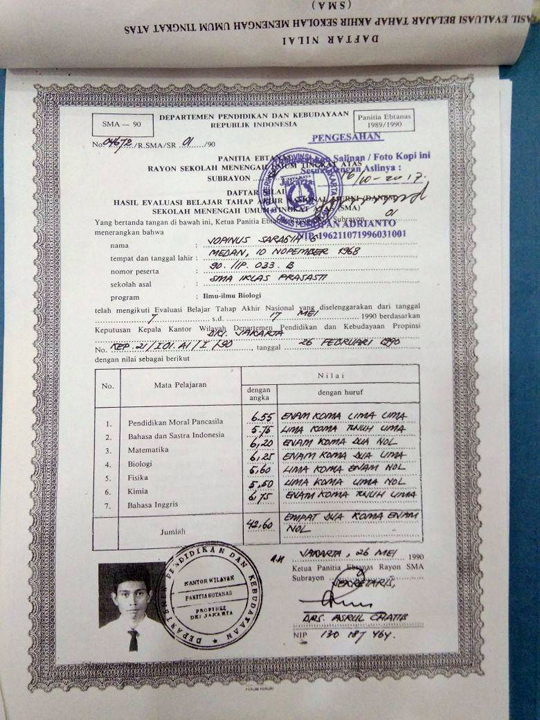 DAFTAR NILAI
HASIL EVALUASI BELAJAR TAHAP AKHIR SEKOLAH MENENGAH UMUM TINGKAT ATAS
(SMA)
SMA — 90
DEPARTEMEN PENDIDIKAN DAN KEBUDAYAAN
REPUBLIK INDONESIA
Panitia Ebtanas
1989/1990
No. /R.SMA/SR 01 /90
PENGESAHAN
PANITIA EBTANAS
Salinan / Foto Kopi ini
RAYON SEKOLAH MENENGAH UMUM TINGKAT ATAS
Aslinya :
SUBRAYON
DAFTAR NILAI
HASIL EVALUASI BELAJAR TAHAP AKHIR NASIONAL
SEKOLAH MENENGAH UMUM TINGKAT ATAS (SMA)
ADRIANTO
NIP.196211071996031001
Yang bertanda tangan di bawah ini, Ketua Panitia Ebtanas Subrayon 01
menerangkan bahwa
nama :
tempat dan tanggal lahir : MEDAN, 10 NOPEMBER 1968
nomor peserta : 90. IIP. 033. 2
sekolah asal : SMA IKLAS PRASASTI
program : Ilmu-ilmu Biologi
telah mengikuti Evaluasi Belajar Tahap Akhir Nasional yang diselenggarakan dari tanggal
7 s.d. 17 MEI 1990 berdasarkan
Keputusan Kepala Kantor Wilayah Departemen Pendidikan dan Kebudayaan Propinsi
DKI JAKARTA
No. KEP. 21/I01.A1/I/90 tanggal 26 FEBRUARI 1990
dengan nilai sebagai berikut
No. Mata Pelajaran Nilai
dengan angka dengan huruf
1. Pendidikan Moral Pancasila 6.55 ENAM KOMA LIMA LIMA
2. Bahasa dan Sastra Indonesia 5.75 LIMA KOMA TUJUH LIMA
3. Matematika 6,20 ENAM KOMA DUA NOL
4. Biologi 6,25 ENAM KOMA DUA LIMA
5. Fisika 5,60 LIMA KOMA ENAM NOL
6. Kimia 5,50 LIMA KOMA LIMA NOL
7. Bahasa Inggris 6,75 ENAM KOMA TUJUH LIMA
Jumlah 42,60 EMPAT DUA KOMA ENAM
NOL
JAKARTA, 26 MEI 1990
Ketua Panitia Ebtanas Rayon SMA
Subrayon
SEKRETARIS,
DEPARTEMEN PENDIDIKAN DAN KEBUDAYAAN
KANTOR WILAYAH
PROPINSI
DKI JAKARTA
DRS. ASRUL
NIP 130 187 464.